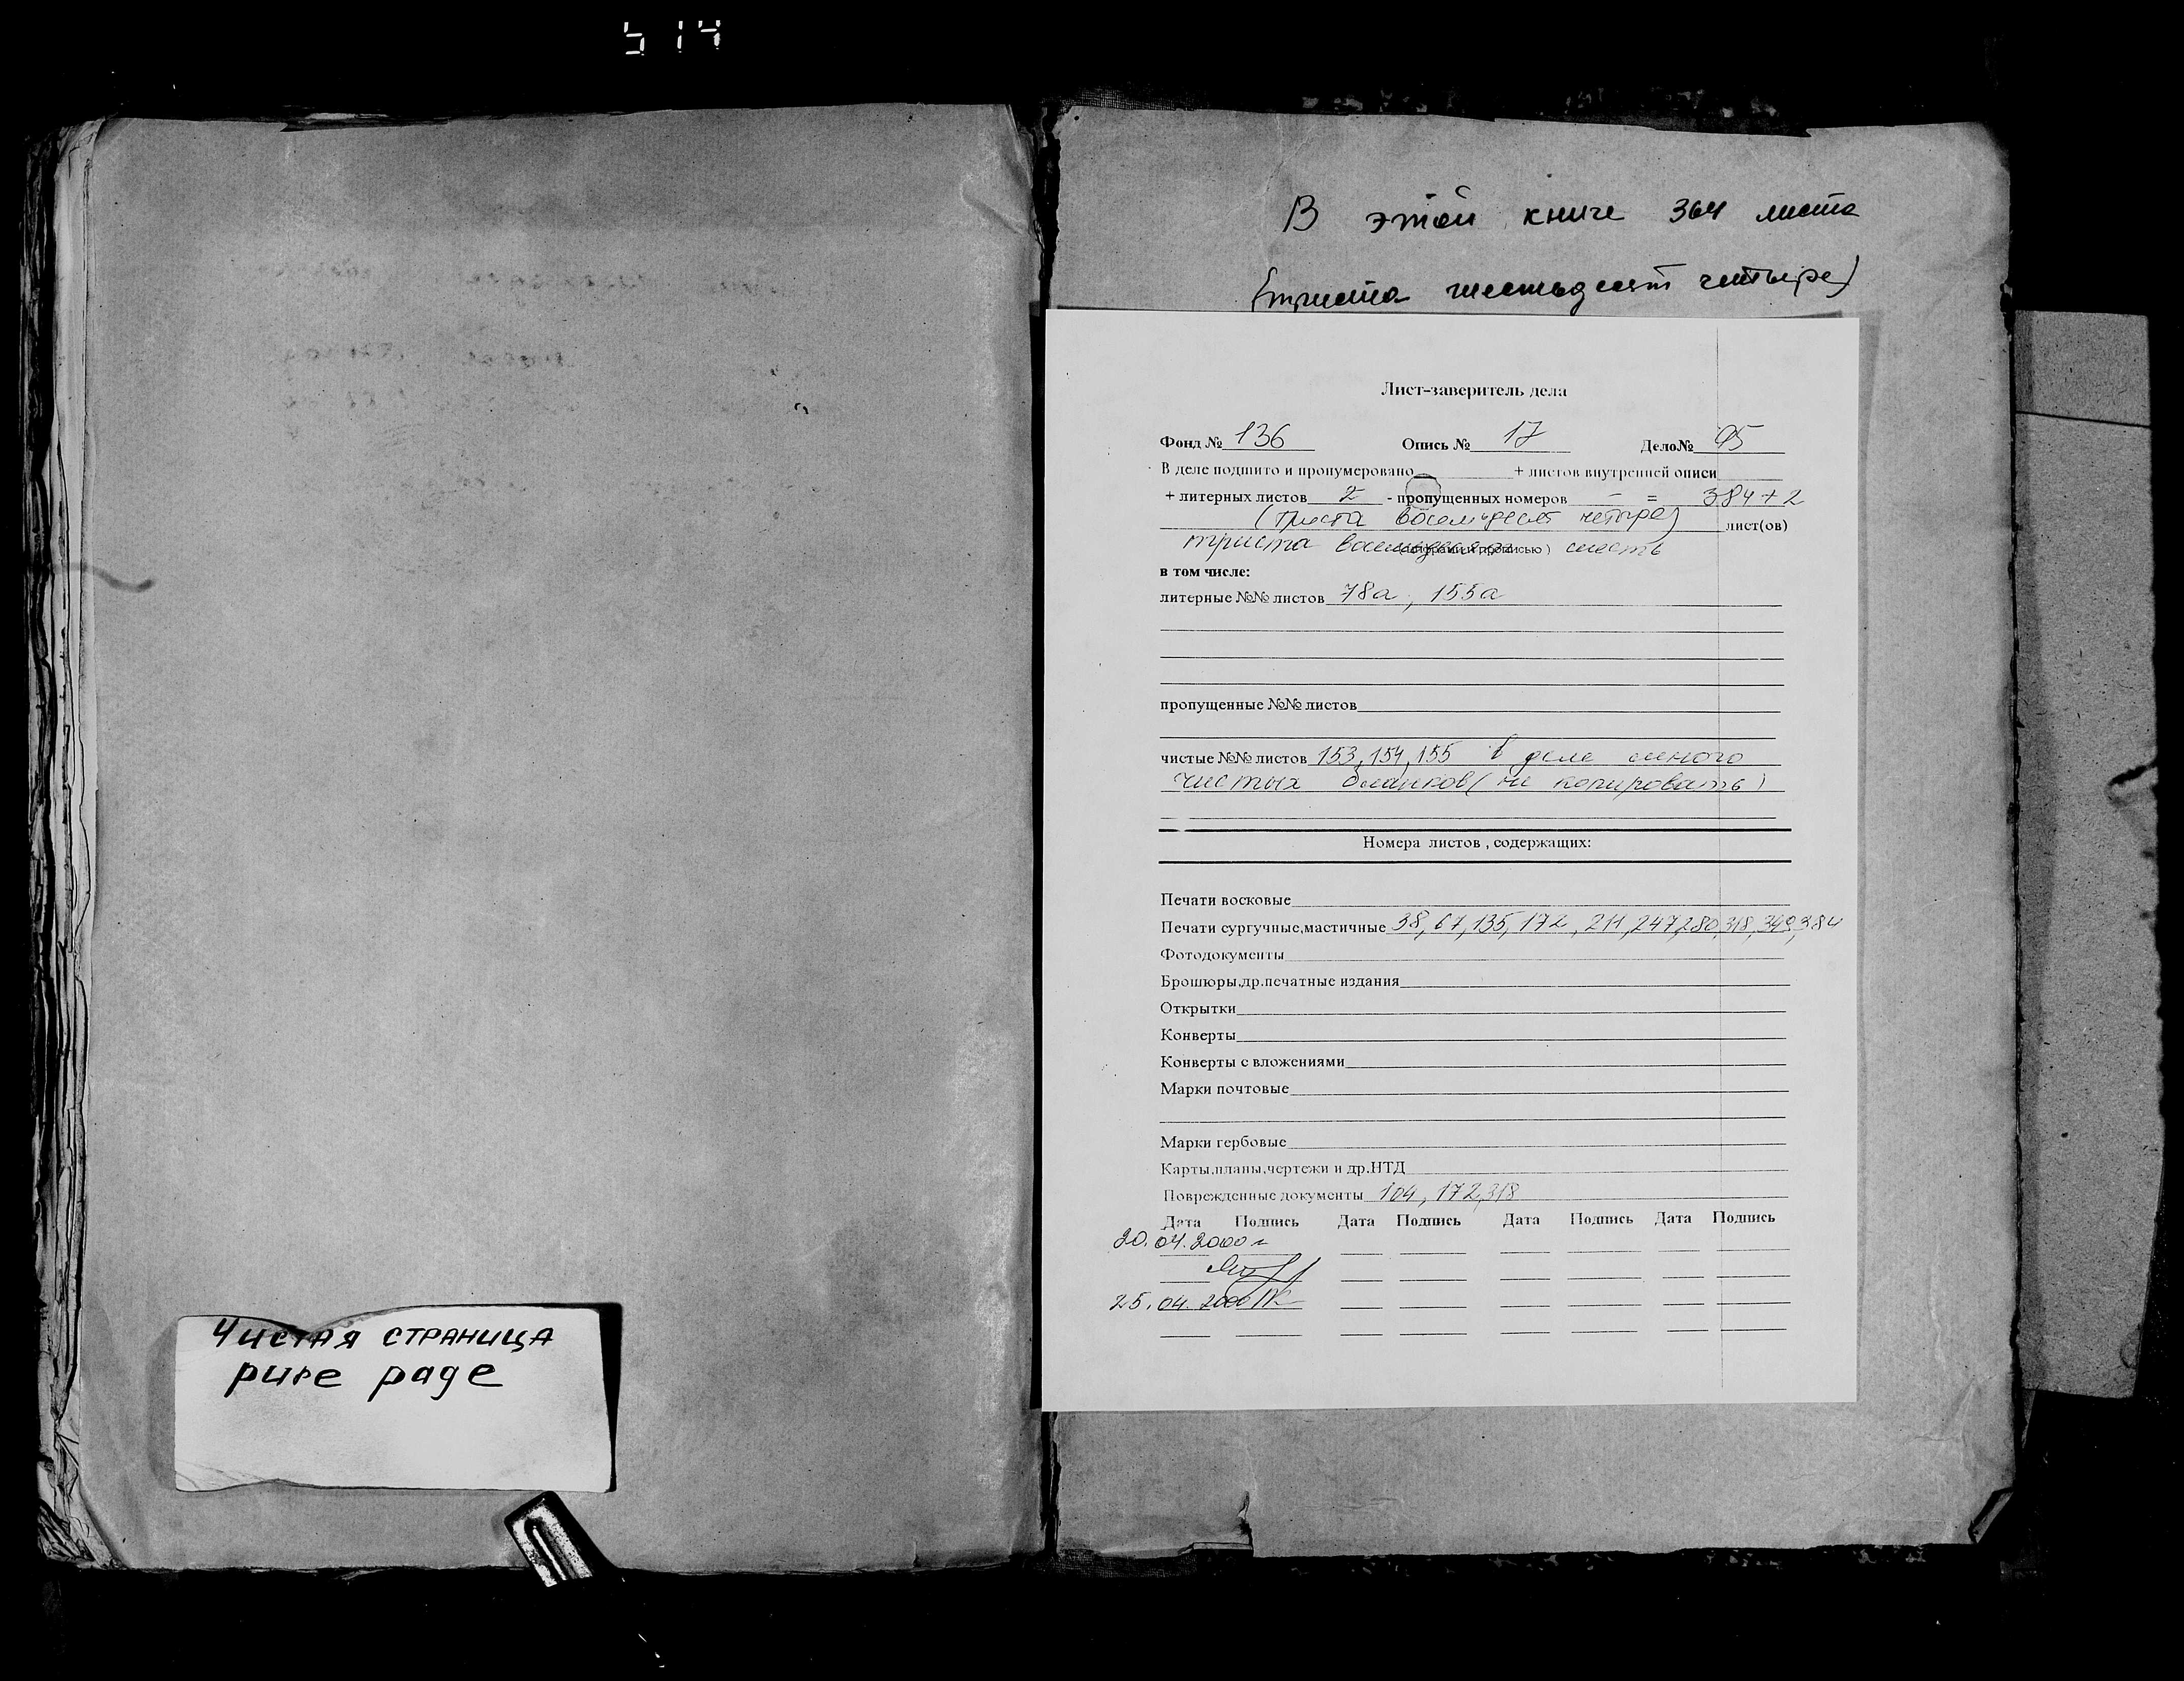 514
В этой книге 364 листа
(триста шестьдесят четыре)
Лист-заверитель дела
Фонд № 136 Опись № 17 Дело№ 95
В деле подшито и пронумеровано + листов внутренней описи
+ литерных листов 2 - пропущенных номеров – = 384+2
(триста восемьдесят четыре) лист(ов)
триста восемьдесят шесть
(цифрами и прописью)
в том числе:
литерные №№ листов 78а, 155а
пропущенные №№ листов
чистые №№ листов 153, 154, 155 в деле много
чистых бланков (не копировать)
Номера листов , содержащих:
Печати восковые
Печати сургучные,мастичные 38, 67, 135, 172, 211, 247, 280, 318, 349, 384
Фотодокументы
Брошюры,др.печатные издания
Открытки
Конверты
Конверты с вложениями
Марки почтовые
Марки гербовые
Карты,планы,чертежи и др.НТД
Поврежденные документы 104, 172, 318
Дата Подпись Дата Подпись Дата Подпись Дата Подпись
20.04.2000 г
25.04.2000
Чистая страница
pure page